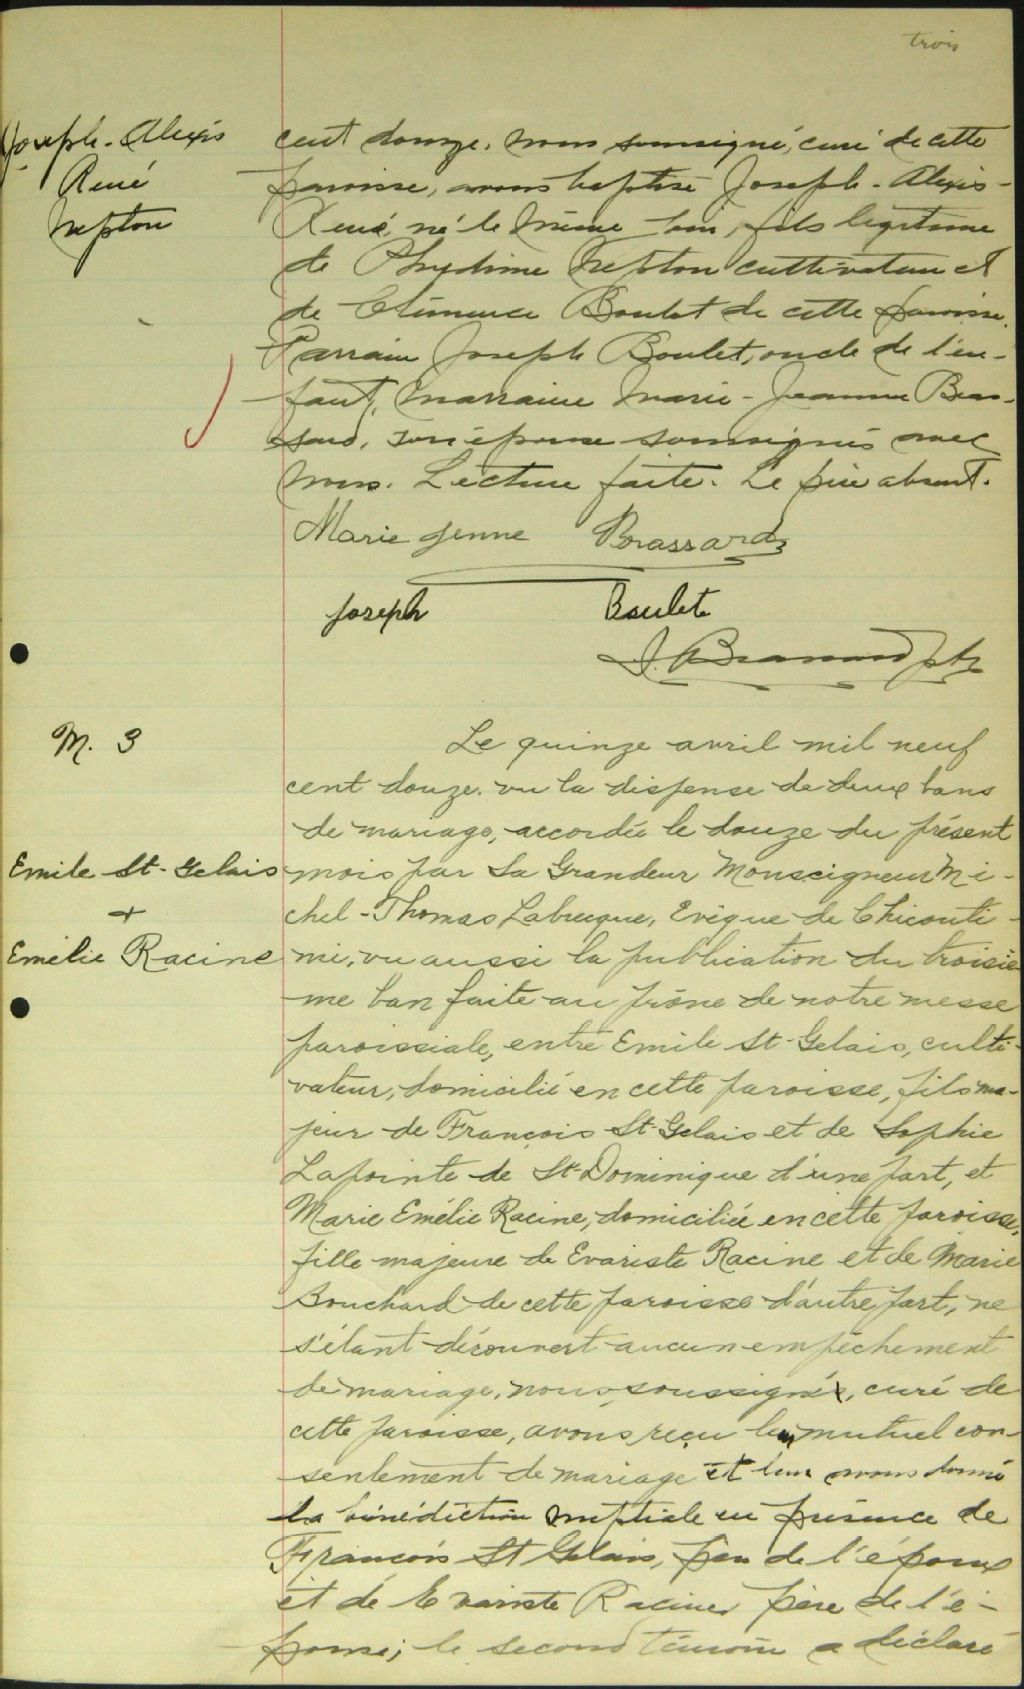 trois
Joseph-Alexis
René
Nepton
cent douze, nous soussigné, curé de cette
paroisse, avons baptisé Joseph-Alexis-
René, né le même jour, fils légitime
de Phydime Nepton cultivateur et
de Clémence Boulet de cette paroisse.
Parrain Joseph Boulet, oncle de l'en-
fant, marraine Marie-Jeanne Bras-
sard, son épouse soussignés avec
nous. Lecture faite. Le père absent.
Marie Jenne Brassard
Joseph Boulet
M. 3
Emile St-Gelais
+
Emélie Racine
Le quinze avril mil neuf
cent douze, vu la dispense de deux bans
de mariage, accordée le douze du présent
mois par Sa Grandeur Monseigneur Mi-
chel-Thomas Labrecque, Evêque de Chicouti-
mi, vu aussi la publication du troisiè-
me ban faite au prône de notre messe
paroissiale, entre Emile St-Gelais, culti-
vateur, domicilié en cette paroisse, fils ma-
jeur de François St-Gelais et de Sophie
Lapointe de St-Dominique d'une part, et
Marie Emélie Racine, domiciliée en cette paroisse,
fille majeure de Evariste Racine et de Marie
Bouchard de cette paroisse d'autre part, ne
s'étant découvert aucun empêchement
de mariage, nous, soussigné, curé de
cette paroisse, avons reçu leur mutuel con-
sentement de mariage et leur avons donné
la bénédiction nuptiale en présence de
François St Gelais, père de l'époux
et de Evariste Racine père de l'é-
pouse; le second témoin a déclaré